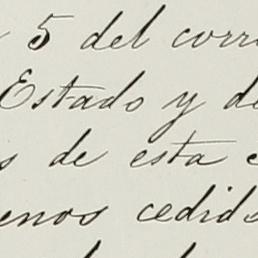 5 del corr
Estado y de
s de esta c
enos cedid